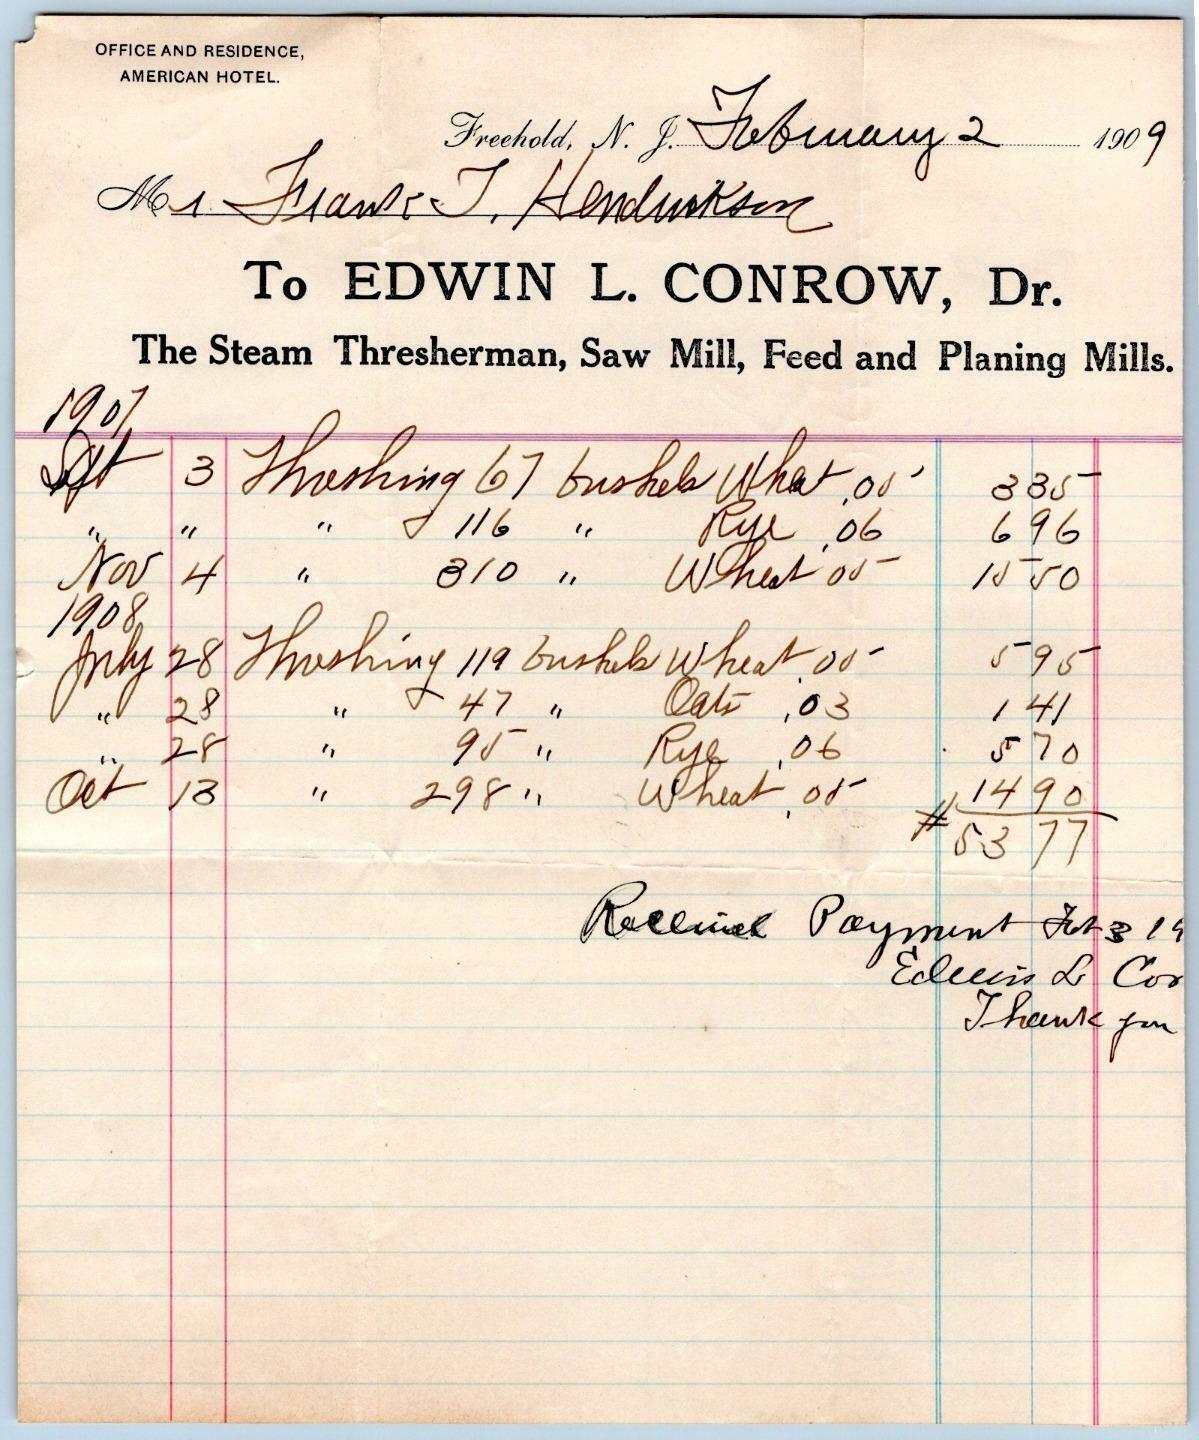 OFFICE AND RESIDENCE,
AMERICAN HOTEL.
Freehold, N. J. February 2 1909
Mr. Frank T. Hendrickson
To EDWIN L. CONROW, Dr.
The Steam Thresherman, Saw Mill, Feed and Planing Mills.
1907
Sept 3 Threshing 67 bushels Wheat .05 3 35
" " " 116 " Rye .06 6 96
Nov 4 " 310 " Wheat .05 15 50
1908
July 28 Threshing 119 bushels Wheat .05 5 95
" 28 " 47 " Oats .03 1 41
" 28 " 95 " Rye .06 5 70
Oct 13 " 298 " Wheat .05 14 90
# 53 77
Received Payment Feb 3 19
Edwin L Con
Thank you